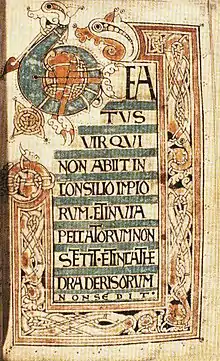 BEA
TUS
VIR QUI
NON ABIIT IN
CONSILIO IMPIO
RUM. ET IN VIA
PECCATORUM NON
STETIT. ET IN CATHE
DRA DERISORUM
NON SEDIT.